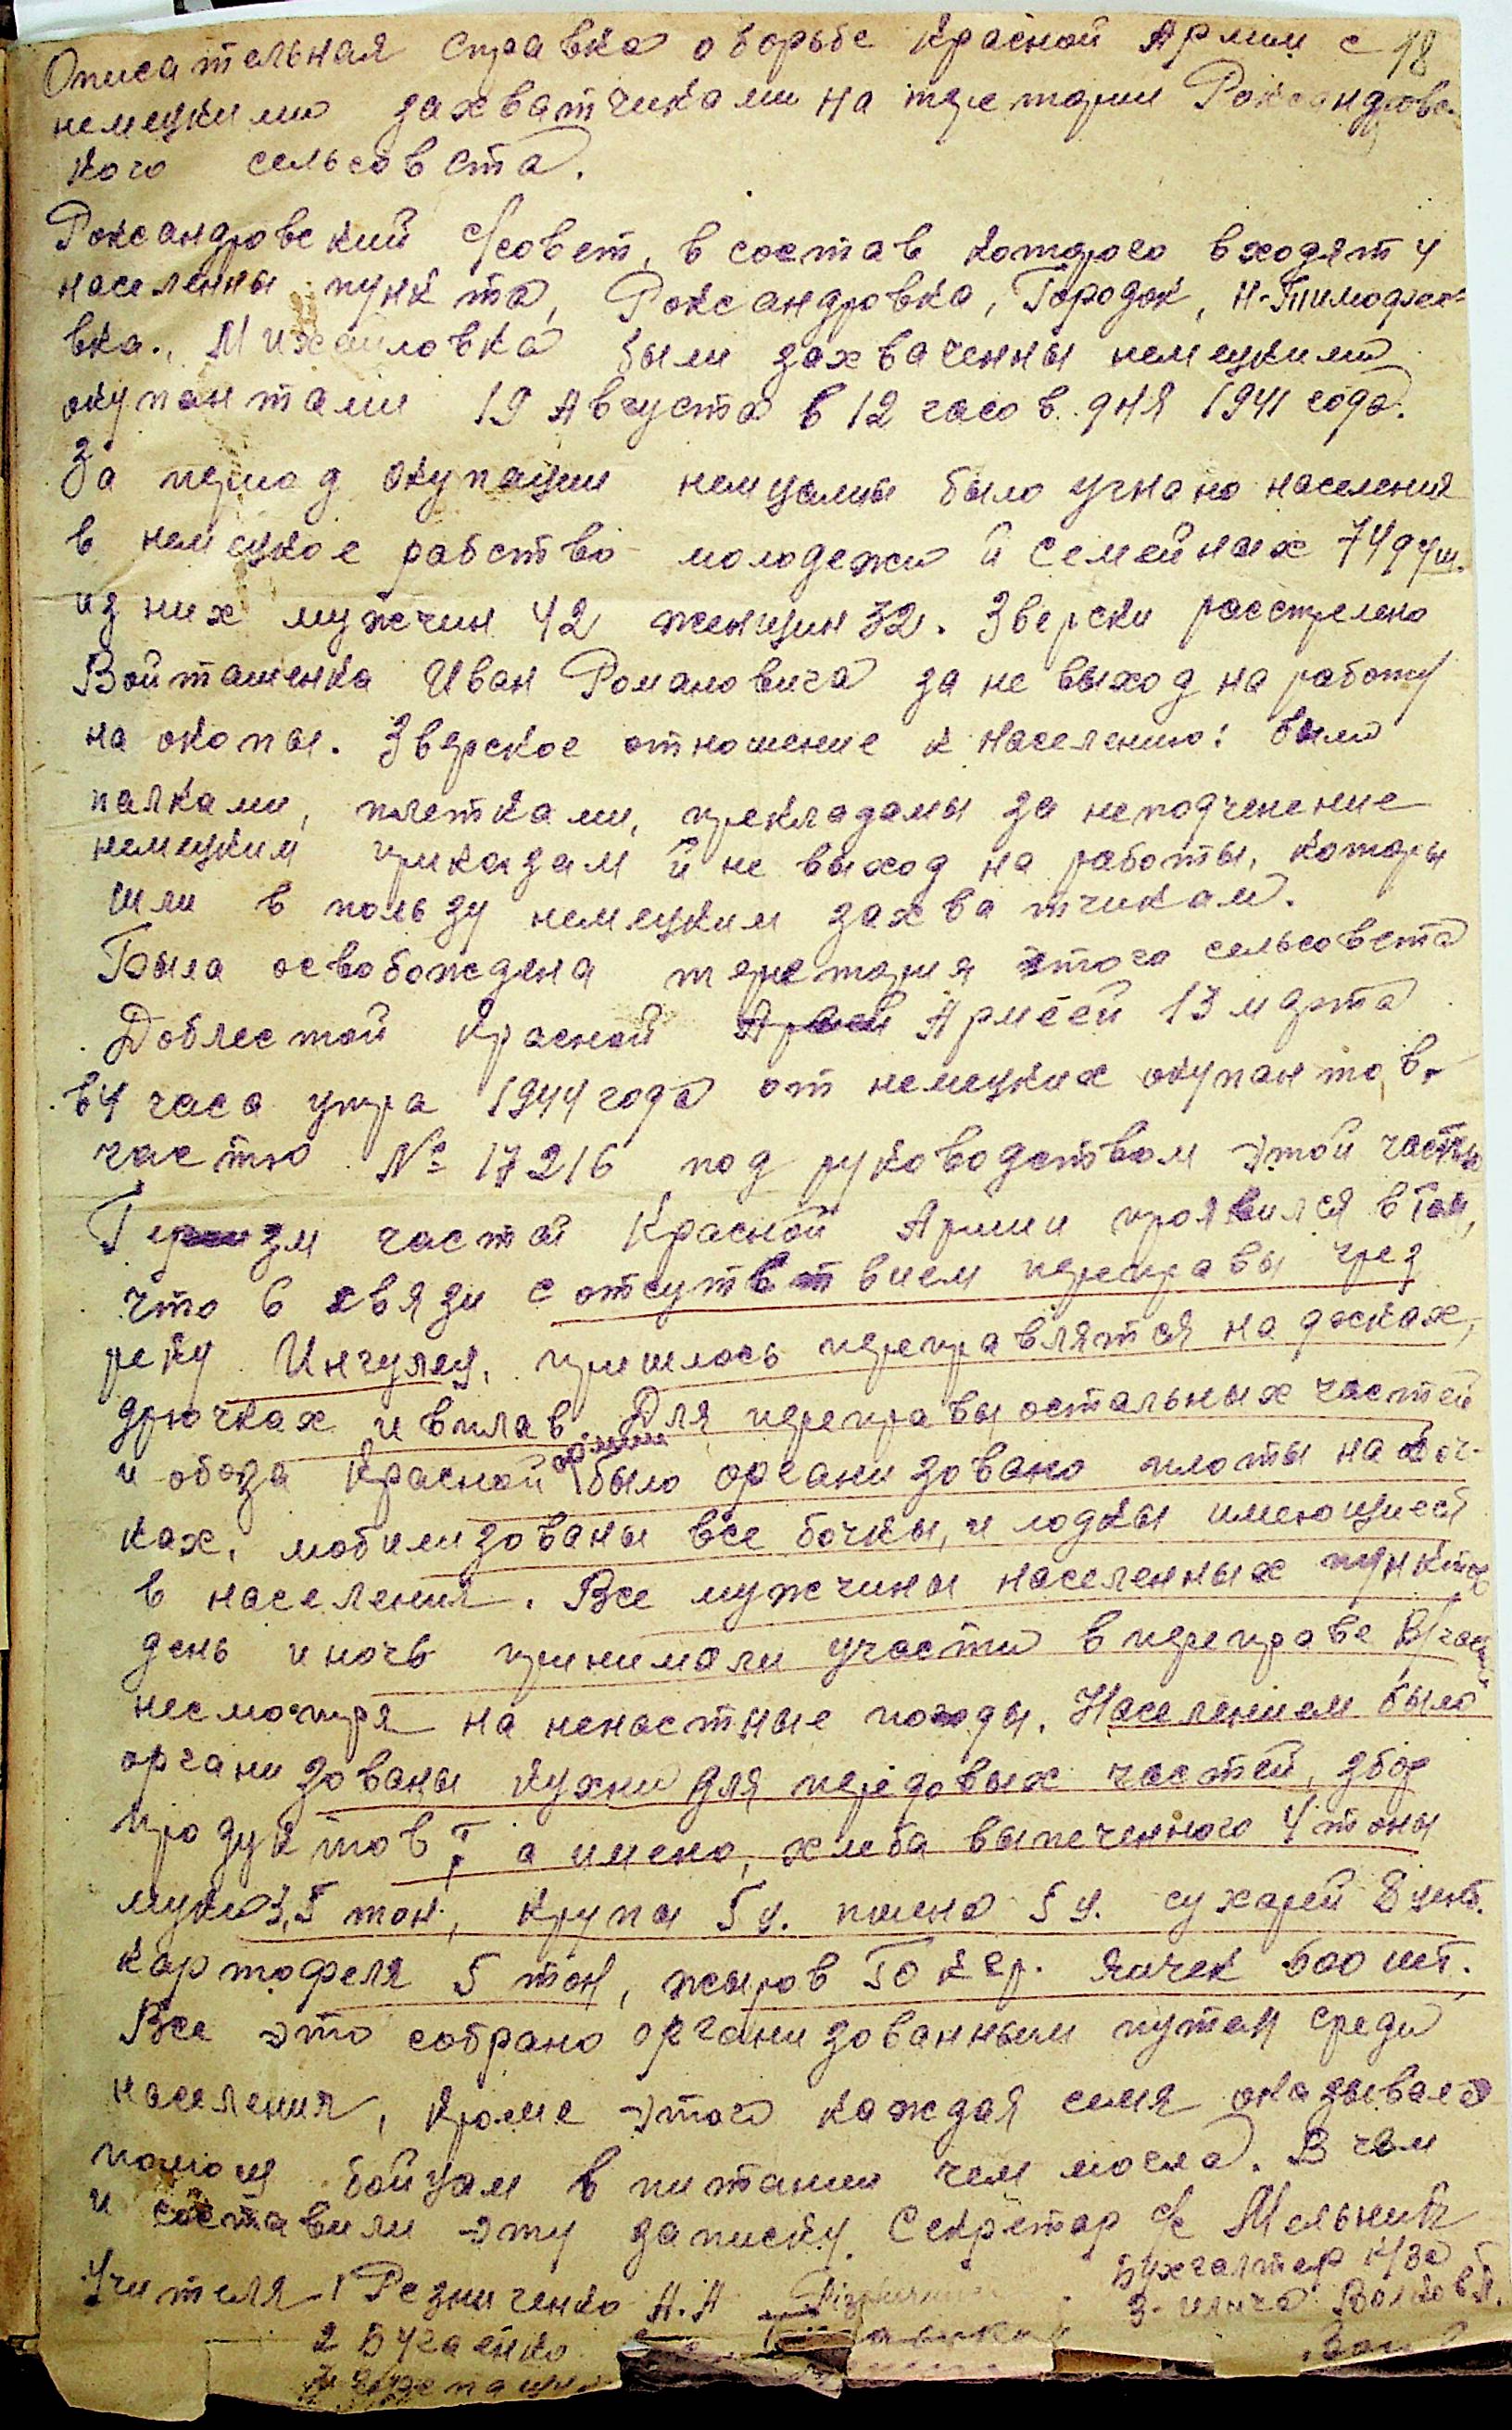 18
Описательная справка о борьбе Красной Армии с
немецкими захватчиками на теретории Роксандровс-
кого сельсовета.
Роксандровский с/совет, в состав которого входят 4
населенны пункта, Роксандровка, Городок, Н-Тимофее-
вка., Михайловка были захваченны немецкими
окупантами 19 Августа в 12 часов дня 1941 года.
За период окупации немцами было угнано населения
в немецкое рабство молодежи и семейных 74 душ.
из них мужчин 42 женщин 32. Зверски расстрелено
Войташенка Иван Романовича за не выход на работу
на окопы. Зверское отношение к населению: были
палками, плетками, прекладамы за неподченение
немецким приказам и не выход на работы, которы
шли в пользу немецким захватчикам.
Была освобождена теретория этого сельсовета
Доблестой Красной Армеей 13 марта
в 4 часа утра 1944 года от немецких окупантов.
частю № 17216 под руководством этой частью
Героизм частей Красной Армии проявился в том,
что в связи с отсутствием переправы чрез
реку Ингулец, пришлось переправлятся на досках,
дрючках и вплав. Для переправы остальных частей
и обоза Красной армии было организовано плоты на боч-
ках, мобилизованы все бочкы, и лодкы имеющиеся
в населения. Все мужчины населенных пунктов
день и ночь принимали участи в переправе в/частей
несмотря на ненастные погоды. Населением было
организованы кухни для передовых частей, збор
продуктов, а имено, хлеба выпеченного 4 тоны
муки 3,5 тон, крупы 5 ц. пшена 5 ц. сухарей 8 цнт.
картофеля 5 тон, жыров 50 кгр. яичек 500 шт.
Все это собрано организованным путем среди
населения, кроме этого каждая семя оказывала
помощ бойцам в питании чем могла. В чем
и составили эту записку. Секретар с/с Мельник
Учителя 1 Резниченко А.А
Бухгалтер к/за
З-Ильича Волков
2 Бугаенко